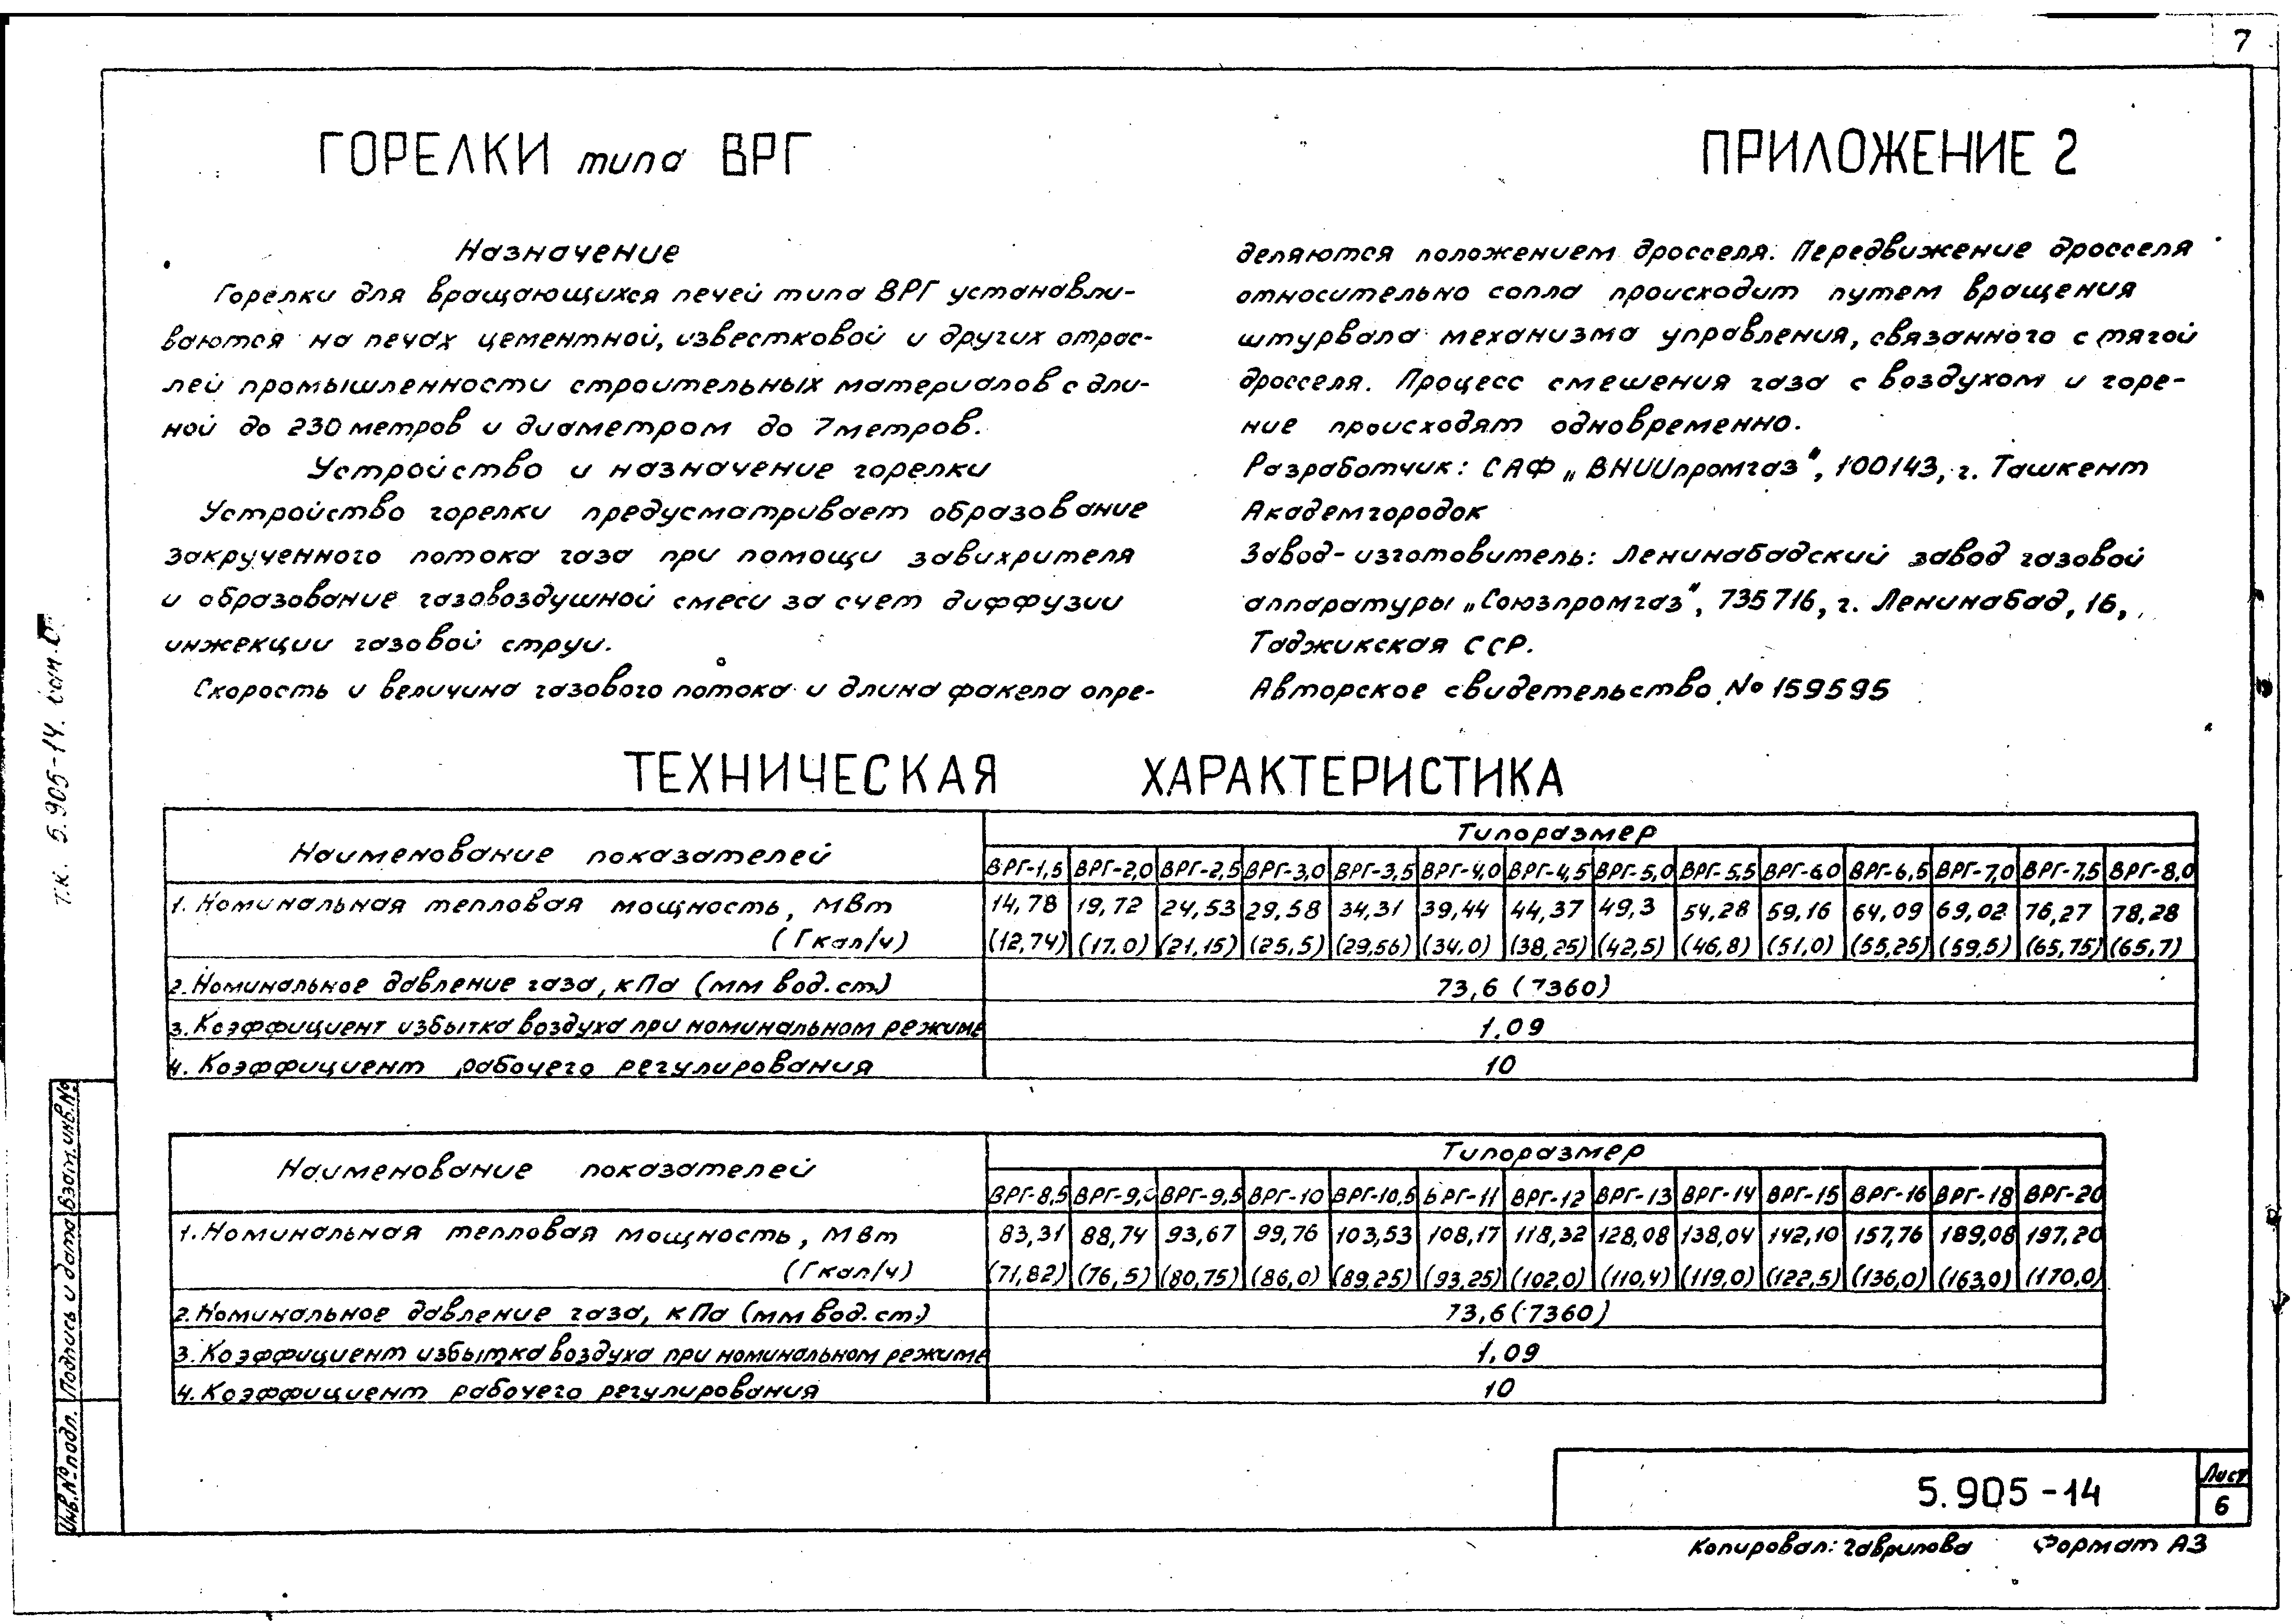 7
ГОРЕЛКИ типа ВРГ
ПРИЛОЖЕНИЕ 2
Назначение
Горелки для вращающихся печей типа ВРГ устанавли-
ваются на печах цементной, известковой и других отрас-
лей промышленности строительных материалов с дли-
ной до 230 метров и диаметром до 7 метров.
Устройство и назначение горелки
Устройство горелки предусматривает образование
закрученного потока газа при помощи завихрителя
и образование газовоздушной смеси за счет диффузии
инжекции газовой струи.
Скорость и величина газового потока и длина факела опре-
деляются положением дросселя. Передвижение дросселя
относительно сопла происходит путем вращения
штурвала механизма управления, связанного с тягой
дросселя. Процесс смешения газа с воздухом и горе-
ние происходят одновременно.
Разработчик: САФ „ВНИИпромгаз", 100143, г. Ташкент
Академгородок
Завод-изготовитель: Ленинабадский завод газовой
аппаратуры „Союзпромгаз", 735716, г. Ленинабад, 16,
Таджикская ССР.
Авторское свидетельство № 159595
ТЕХНИЧЕСКАЯ ХАРАКТЕРИСТИКА
Наименование показателей
Типоразмер
ВРГ-1,5 ВРГ-2,0 ВРГ-2,5 ВРГ-3,0 ВРГ-3,5 ВРГ-4,0 ВРГ-4,5 ВРГ-5,0 ВРГ-5,5 ВРГ-6,0 ВРГ-6,5 ВРГ-7,0 ВРГ-7,5 ВРГ-8,0
1. Номинальная тепловая мощность, МВт 14,78 19,72 24,53 29,58 34,31 39,44 44,37 49,3 54,28 59,16 64,09 69,02 76,27 78,28
(Гкал/ч) (12,74) (17,0) (21,15) (25,5) (29,56) (34,0) (38,25) (42,5) (46,8) (51,0) (55,25) (59,5) (65,75) (65,7)
2. Номинальное давление газа, кПа (мм вод. ст.) 73,6 (7360)
3. Коэффициент избытка воздуха при номинальном режиме 1.09
4. Коэффициент рабочего регулирования 10
Наименование показателей
Типоразмер
ВРГ-8,5 ВРГ-9,0 ВРГ-9,5 ВРГ-10 ВРГ-10,5 ВРГ-11 ВРГ-12 ВРГ-13 ВРГ-14 ВРГ-15 ВРГ-16 ВРГ-18 ВРГ-20
1. Номинальная тепловая мощность, МВт 83,31 88,74 93,67 99,76 103,53 108,17 118,32 128,08 138,04 142,10 157,76 189,08 197,20
(Гкал/ч) (71,82) (76,5) (80,75) (86,0) (89,25) (93,25) (102,0) (110,4) (119,0) (122,5) (136,0) (163,0) (170,0)
2. Номинальное давление газа, кПа (мм вод. ст.) 73,6 (7360)
3. Коэффициент избытка воздуха при номинальном режиме 1,09
4. Коэффициент рабочего регулирования 10
Т.К. 5.905-14.
Взам. инв. №
Подпись и дата
Инв. № подл.
5.905-14
Лист
6
Копировал: Гаврилова Формат А3